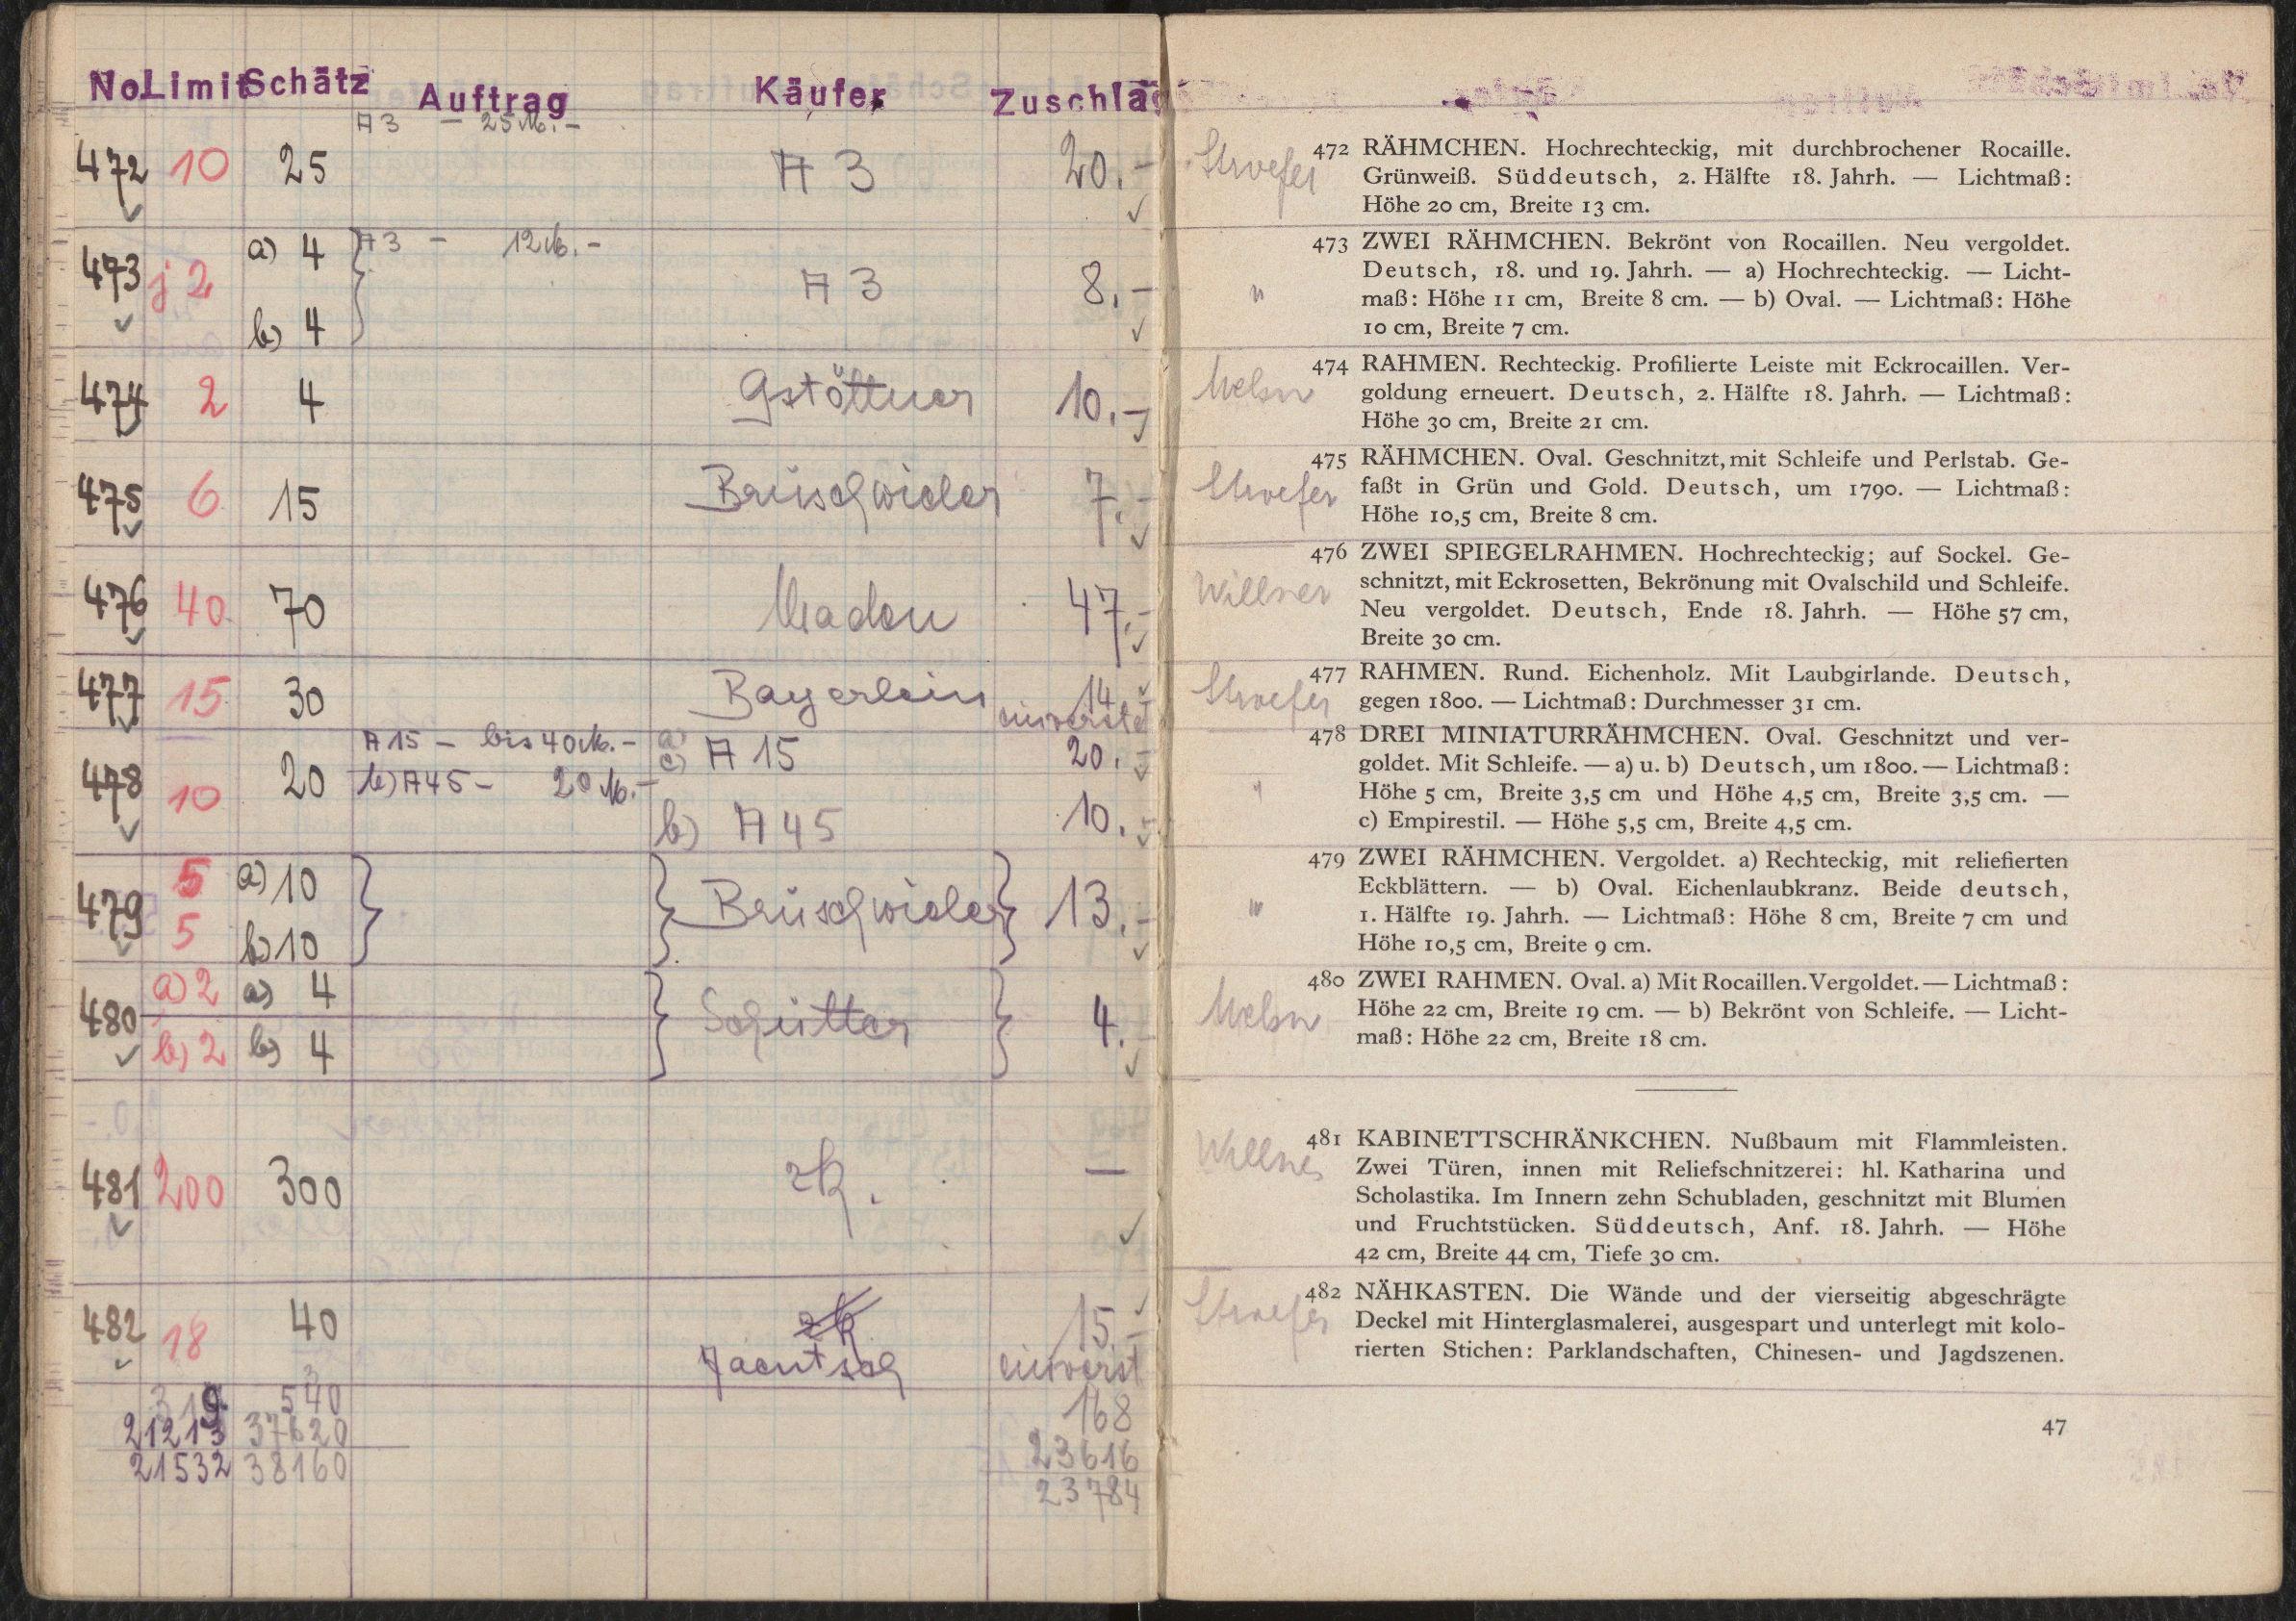 No. Limit Schätz Auftrag Käufer Zuschlag
A 3 – 25 M. –
472 10 25 A 3 20.–
473 j 2 a) 4 A 3 – 12 M. – A 3 8.–
b) 4
474 2 4 Gstöttner 10.–
475 6 15 Brüschwiler 7.–
476 40 70 47.–
477 15 30 Bayerlein 14
einverst
478 10 20 A 15 – bis 40 M. – a) c) A 15 20.–
b) A 45 – 20 M. – b) A 45 10.–
479 5 a) 10 Brüschwiler 13.–
5 b) 10
480 a) 2 a) 4 4.–
b) 2 b) 4
481 200 300 zk. —
482 18 40 zk 15.–
Jaentsch einverst
319 540 168
21213 37620 23616
21532 38160 23784
Stroefer
472 RÄHMCHEN. Hochrechteckig, mit durchbrochener Rocaille.
Grünweiß. Süddeutsch, 2. Hälfte 18. Jahrh. — Lichtmaß:
Höhe 20 cm, Breite 13 cm.
" 473 ZWEI RÄHMCHEN. Bekrönt von Rocaillen. Neu vergoldet.
Deutsch, 18. und 19. Jahrh. — a) Hochrechteckig. — Licht-
maß: Höhe 11 cm, Breite 8 cm. — b) Oval. — Lichtmaß: Höhe
10 cm, Breite 7 cm.
474 RAHMEN. Rechteckig. Profilierte Leiste mit Eckrocaillen. Ver-
goldung erneuert. Deutsch, 2. Hälfte 18. Jahrh. — Lichtmaß:
Höhe 30 cm, Breite 21 cm.
Stroefer
475 RÄHMCHEN. Oval. Geschnitzt, mit Schleife und Perlstab. Ge-
faßt in Grün und Gold. Deutsch, um 1790. — Lichtmaß:
Höhe 10,5 cm, Breite 8 cm.
Willner
476 ZWEI SPIEGELRAHMEN. Hochrechteckig; auf Sockel. Ge-
schnitzt, mit Eckrosetten, Bekrönung mit Ovalschild und Schleife.
Neu vergoldet. Deutsch, Ende 18. Jahrh. — Höhe 57 cm,
Breite 30 cm.
Stroefer
477 RAHMEN. Rund. Eichenholz. Mit Laubgirlande. Deutsch,
gegen 1800. — Lichtmaß: Durchmesser 31 cm.
" 478 DREI MINIATURRÄHMCHEN. Oval. Geschnitzt und ver-
goldet. Mit Schleife. — a) u. b) Deutsch, um 1800. — Lichtmaß:
Höhe 5 cm, Breite 3,5 cm und Höhe 4,5 cm, Breite 3,5 cm. —
c) Empirestil. — Höhe 5,5 cm, Breite 4,5 cm.
" 479 ZWEI RÄHMCHEN. Vergoldet. a) Rechteckig, mit reliefierten
Eckblättern. — b) Oval. Eichenlaubkranz. Beide deutsch,
1. Hälfte 19. Jahrh. — Lichtmaß: Höhe 8 cm, Breite 7 cm und
Höhe 10,5 cm, Breite 9 cm.
480 ZWEI RAHMEN. Oval. a) Mit Rocaillen. Vergoldet. — Lichtmaß:
Höhe 22 cm, Breite 19 cm. — b) Bekrönt von Schleife. — Licht-
maß: Höhe 22 cm, Breite 18 cm.
Willner
481 KABINETTSCHRÄNKCHEN. Nußbaum mit Flammleisten.
Zwei Türen, innen mit Reliefschnitzerei: hl. Katharina und
Scholastika. Im Innern zehn Schubladen, geschnitzt mit Blumen
und Fruchtstücken. Süddeutsch, Anf. 18. Jahrh. — Höhe
42 cm, Breite 44 cm, Tiefe 30 cm.
Stroefer
482 NÄHKASTEN. Die Wände und der vierseitig abgeschrägte
Deckel mit Hinterglasmalerei, ausgespart und unterlegt mit kolo-
rierten Stichen: Parklandschaften, Chinesen- und Jagdszenen.
47